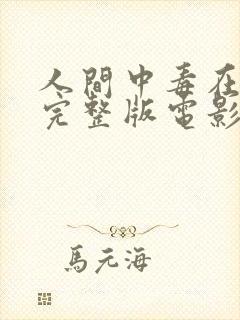 人間中毒在
完整版電影
馬元海